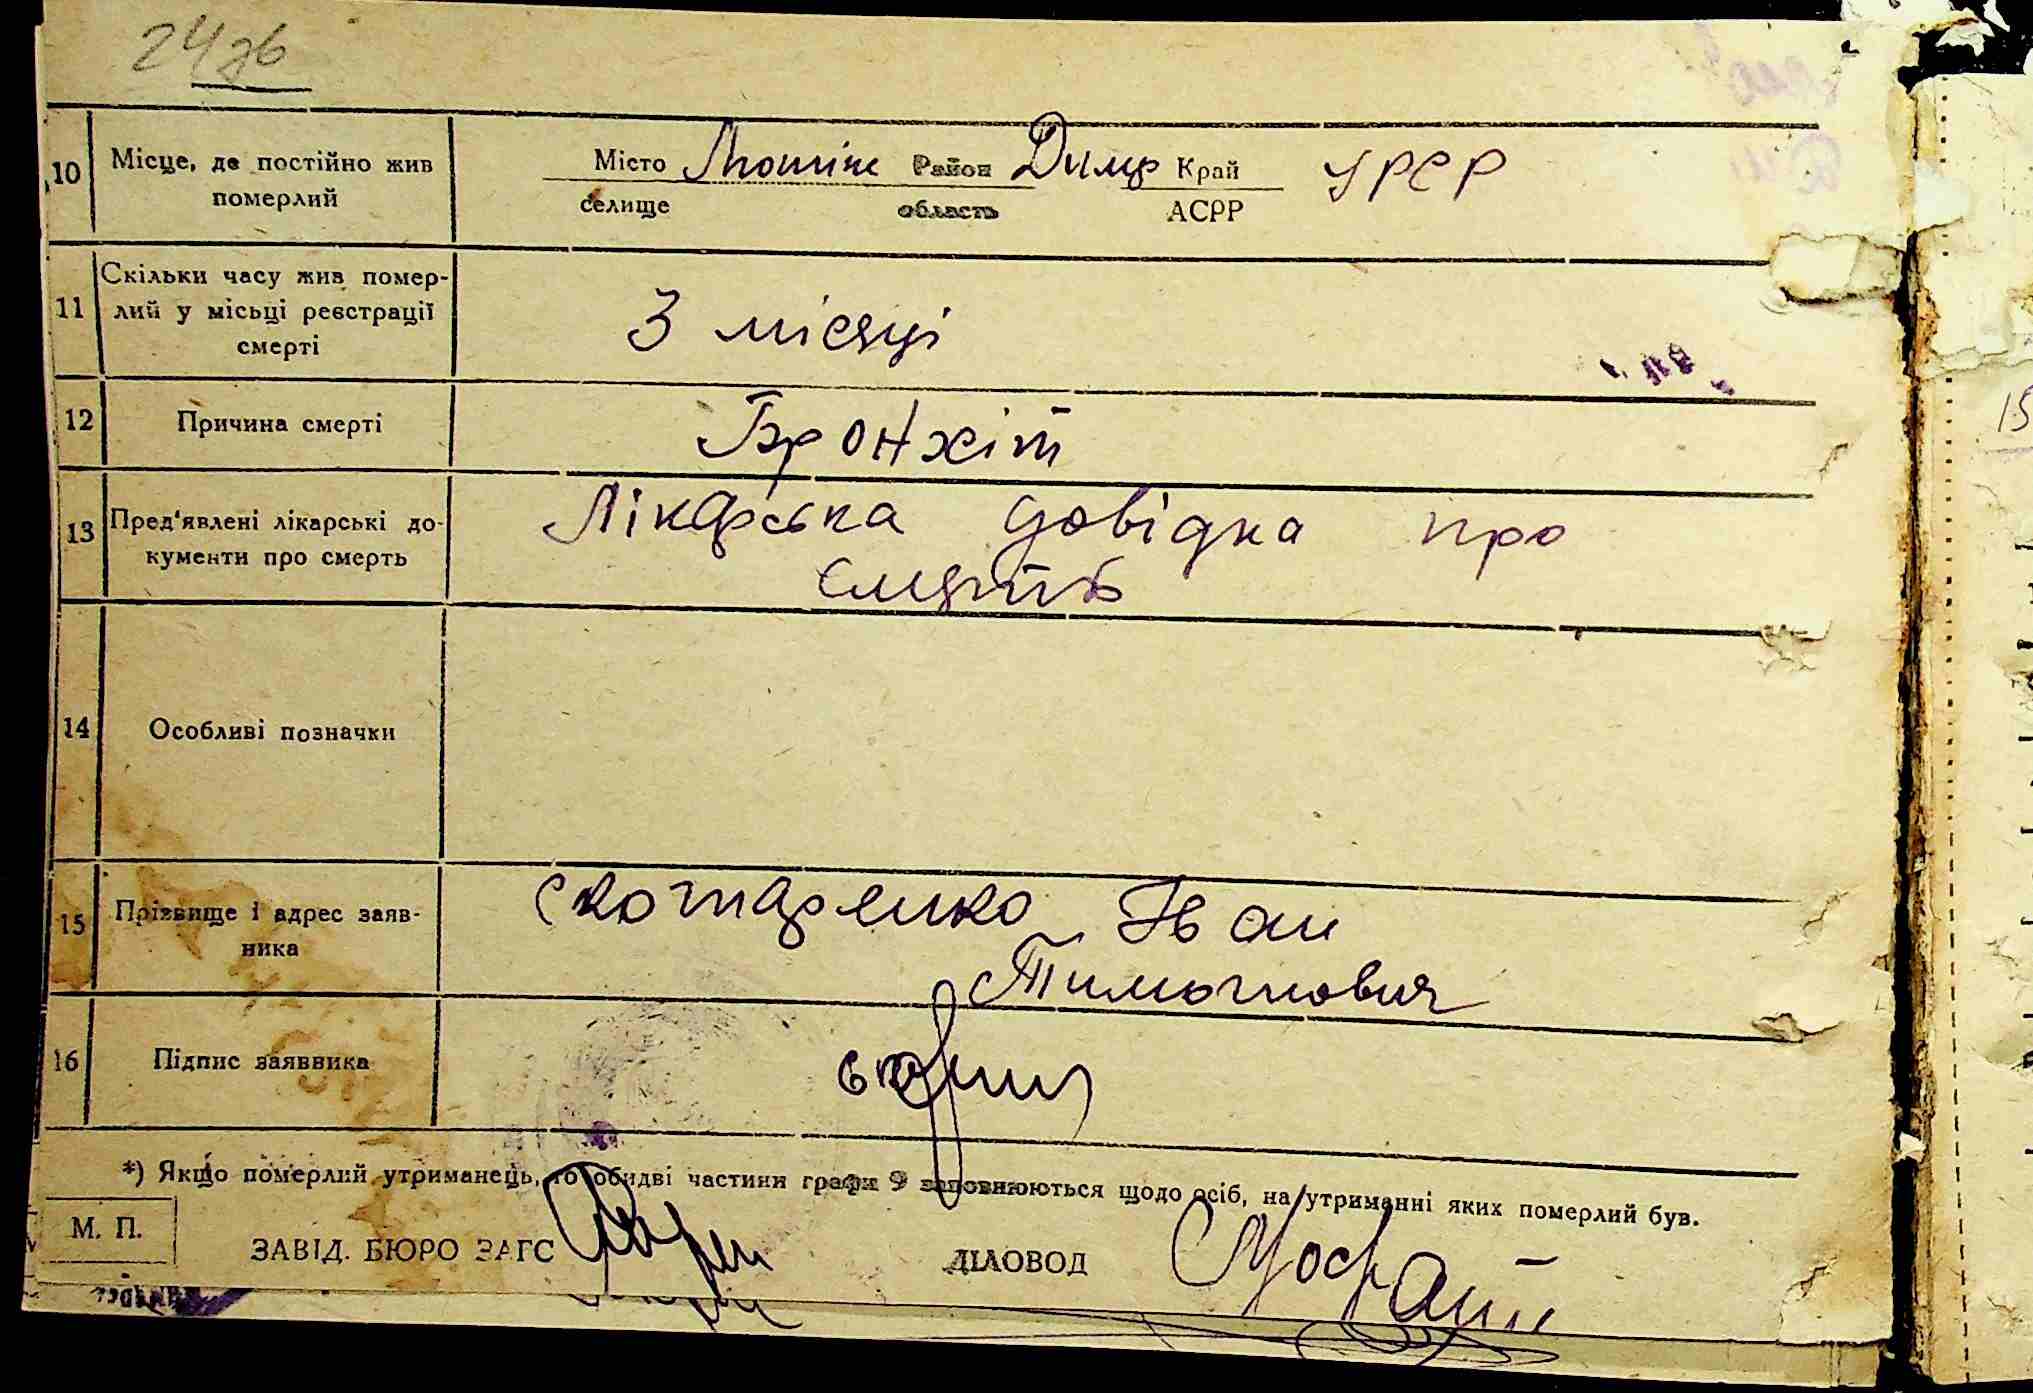 24зв
10 Місце, де постійно жив померлий
Місто Лютіж Район Димр Край УРСР
селище область АСРР
11 Скільки часу жив помер-
лий у місьці реєстрації
смерті
3 місяці
12 Причина смерті Бронхіт
13 Пред'явлені лікарські до-
кументи про смерть
Лікарська довідка про
смерть
14 Особливі позначки
15 Прізвище і адрес заяв-
ника
Скотаренко Іван
Тимофієвич
16 Підпис заяввика
*) Якщо померлий утриманець, то обидві частини графи 9 заповнюються щодо осіб, на утриманні яких померлий був.
М. П.
ЗАВІД. БЮРО ЗАГС ДІЛОВОД
15